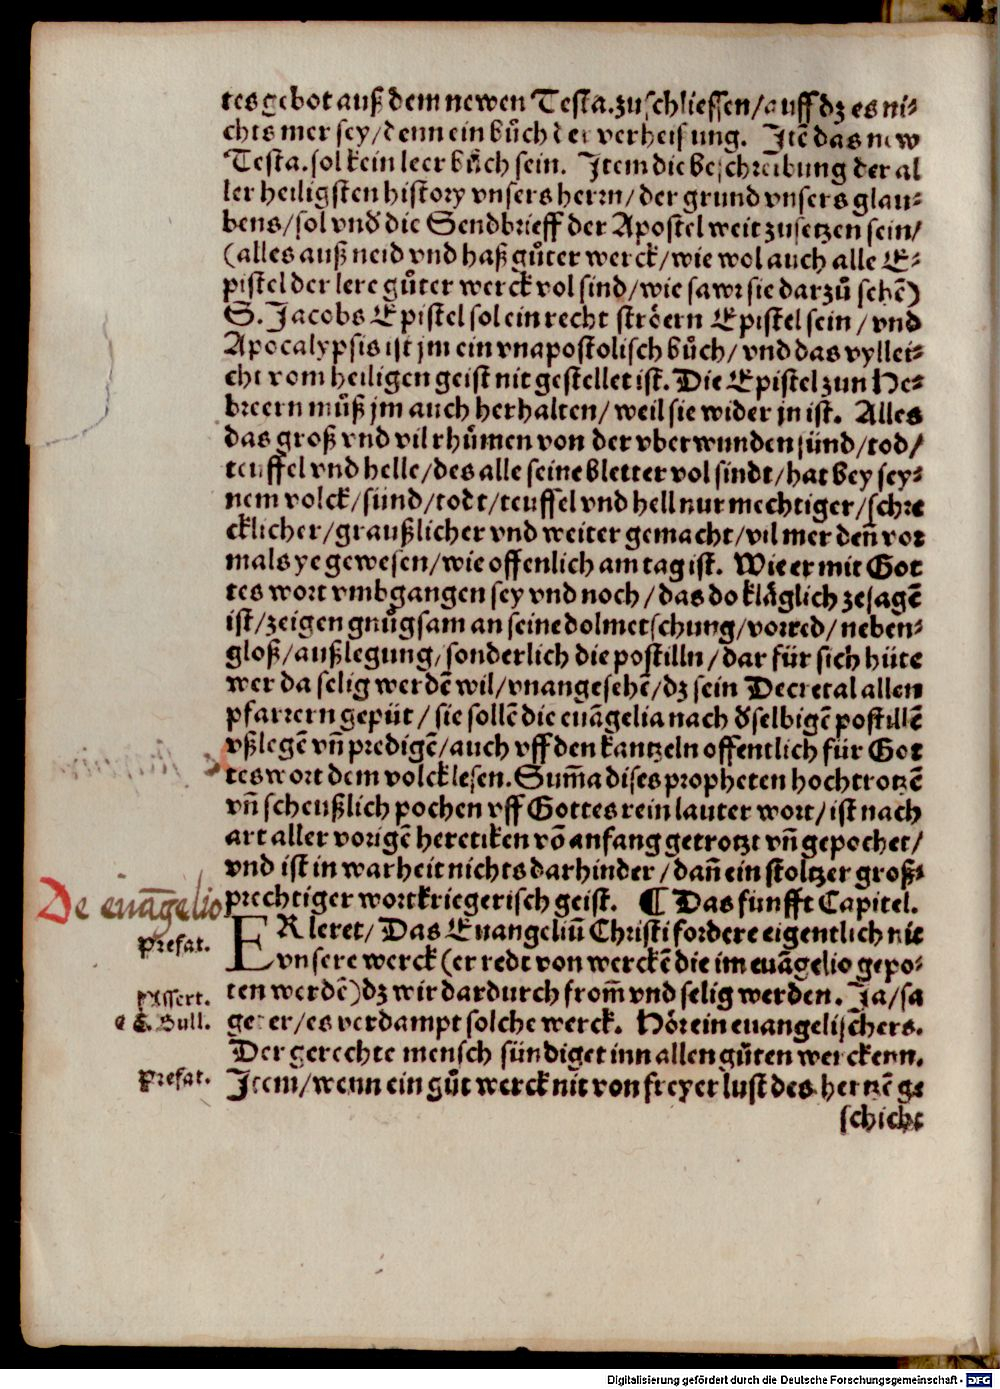 tes gebot auß dem newen Testa. zuschliessen/auff dz es ni⸗
chts mer sey/denn ein bůch der verheisung. Itē das new
Testa. sol kein leer bůch sein. Item die beschreibung der al
ler heiligsten history vnsers herrn/der grund vnsers glau⸗
bens/sol vnd̄ die Sendbrieff der Apostel weit zusetzen sein/
(alles auß neid vnd haß gůter werck/wie wol auch alle E⸗
pistel der lere gůter werck vol sind/wie sawr sie darzů sehē)
S. Jacobs Epistel sol ein recht ströern Epistel sein/vnd
Apocalypsis ist jm ein vnapostolisch bůch/vnd das vyllei⸗
cht vom heiligen geist nit gestellet ist. Die Epistel zun He⸗
breern můß jm auch herhalten/weil sie wider jn ist. Alles
das groß vnd vil rhůmen von der vberwunden sünd/tod/
teuffel vnd helle/des alle seine bletter vol sindt/hat bey sey⸗
nem volck/sünd/todt/teuffel vnd hell nur mechtiger/schre
cklicher/graußlicher vnd weiter gemacht/vil mer deñ vor
mals ye gewesen/wie offenlich am tag ist. Wie er mit Got
tes wort vmbgangen sey vnd noch/das do kläglich zesagē
ist/zeigen gnůgsam an seine dolmetschung/vorred/neben⸗
gloß/außlegung/sonderlich die postilln/dar für sich hüte
wer da selig werdē wil/vnangesehē/dz sein Decretal allen
pfarrern gepüt/sie sollē die euāgelia nach d̄selbigē postillē
vßlegē vñ predigē/auch vff den kantzeln offentlich für Got
tes wort dem volck lesen. Sum̄a dises propheten hochtrotzē
vñ scheußlich pochen vff Gottes rein lauter wort/ist nach
art aller vorigē heretiken vō anfang getrotzt vñ gepochet/
vnd ist in warheit nichts darhinder/dañ ein stoltzer groß⸗
prechtiger wortkriegerisch geist. ¶ Das funfft Capitel.
De euāgelio
ER leret/Das Euangeliū Christi fordere eigentlich nit
Prefat.
vnsere werck (er redt von werckē die im euāgelio gepo⸗
ten werdē) dz wir dardurch from̄ vnd selig werden. Ja/sa
Assert.
get er/es verdampt solche werck. Hör ein euangelischers.
e L. Bull.
Der gerechte mensch sündiget inn allen gůten werckenn.
Item/wenn ein gůt werck nit von freyer lust des hertzē ge
Prefat.
schicht
Digitalisierung gefördert durch die Deutsche Forschungsgemeinschaft - DFG